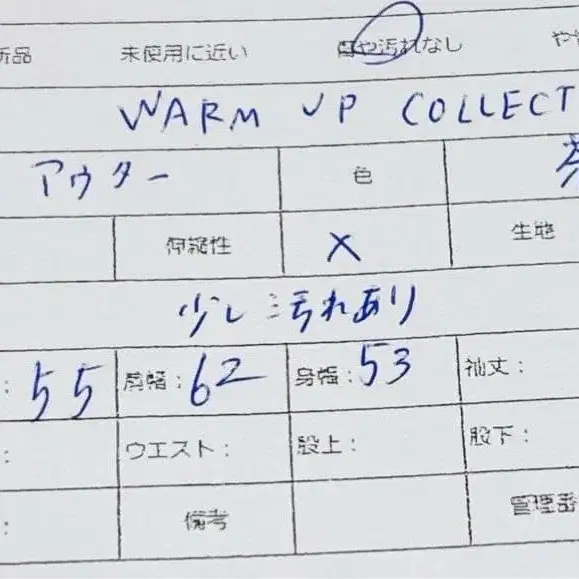 新品 未使用に近い 傷や汚れなし やや
WARM UP COLLECT
アウター 色
伸縮性 × 生地
少し汚れあり
: 55 肩幅: 62 身幅: 53 袖丈:
: ウエスト: 股上: 股下:
: 備考 管理番